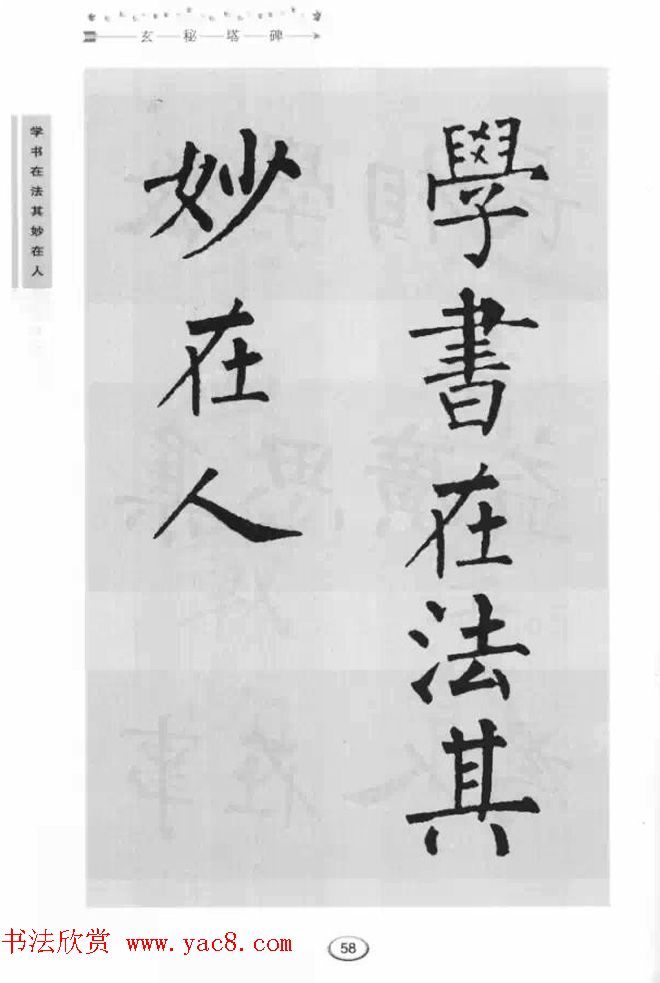 玄秘塔碑
学书在法其妙在人
學書在法其
妙在人
58
书法欣赏 www.yac8.com